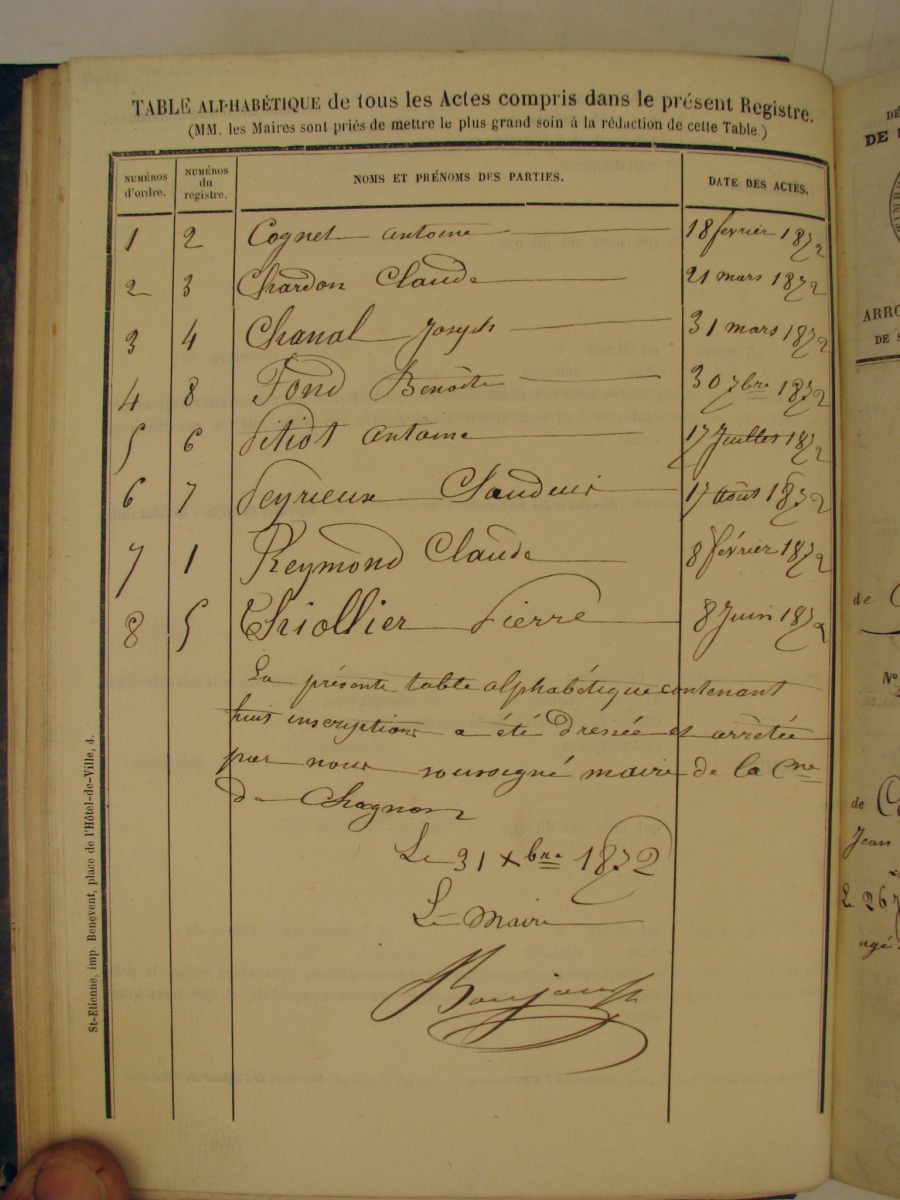 TABLE ALPHABÉTIQUE de tous les Actes compris dans le présent Registre.
(MM. les Maires sont priés de mettre le plus grand soin à la rédaction de cette Table.)
NUMÉROS d'ordre. NUMÉROS du registre. NOMS ET PRÉNOMS DES PARTIES. DATE DES ACTES.
1 2 Cognet Antoine 18 février 1872
2 3 Chardon Claude 21 mars 1872
3 4 Chanal Joseph 31 mars 1872
4 8 Fond Benoîte 30 7bre 1872
5 6 Pitiot Antoine 17 Juillet 1872
6 7 Peyrieux 17 août 1872
7 1 Reymond Claude 8 février 1872
8 5 Thiollier Pierre 8 Juin 1872
La présente table alphabétique contenant
huit inscriptions a été dressée et arrêtée
par nous soussigné maire de la Cne
de Chagnon
Le 31 Xbre 1872
Le Maire
St-Etienne, imp. Benevent, place de l'Hôtel-de-Ville, 4.
ARRO
DE S
de
N°
de
Jean
Le 26
agé